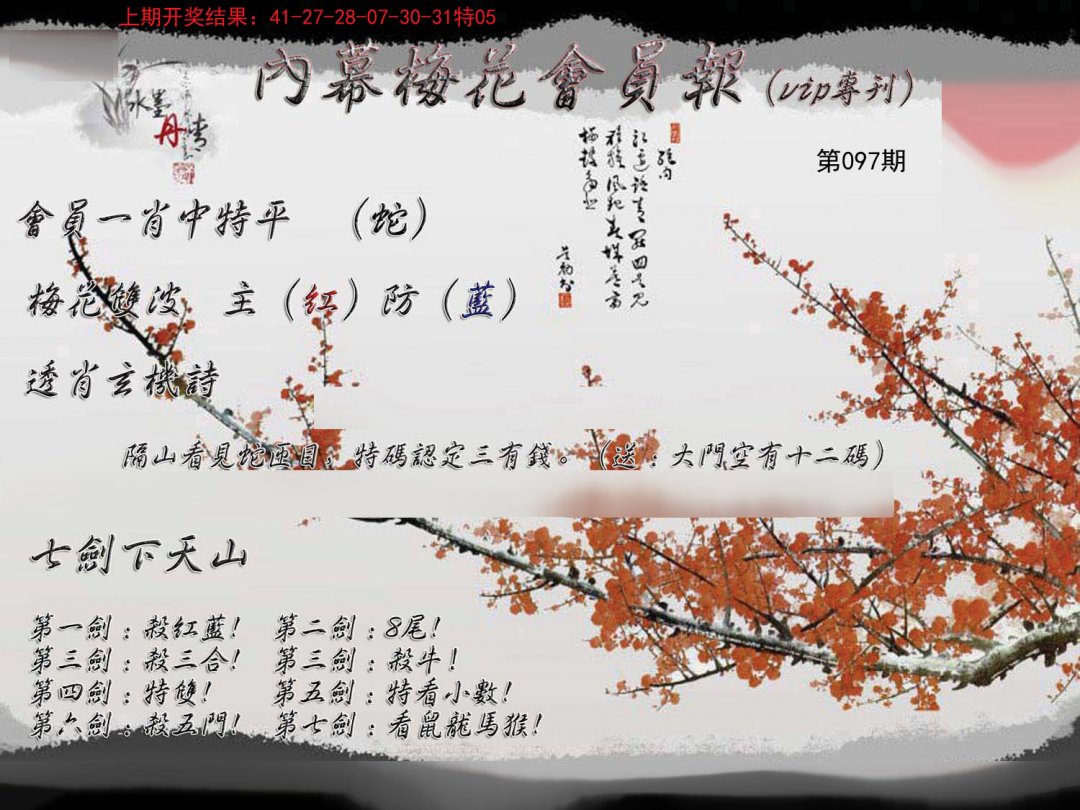 上期开奖结果：41-27-28-07-30-31特05
內幕梅花會員報（vip專刊）
水墨
丹青
第097期
會員一肖中特平　（蛇）
梅花雙波　主（红）防（藍）
透肖玄機詩
隔山看見蛇匝目；特碼認定三有錢。（送：大門空有十二碼）
七劍下天山
第一劍：殺红藍！　第二劍：8尾！
第三劍：殺三合！　第三劍：殺牛！
第四劍：特雙！　第五劍：特看小數！
第六劍：殺五門！　第七劍：看鼠龍馬猴！